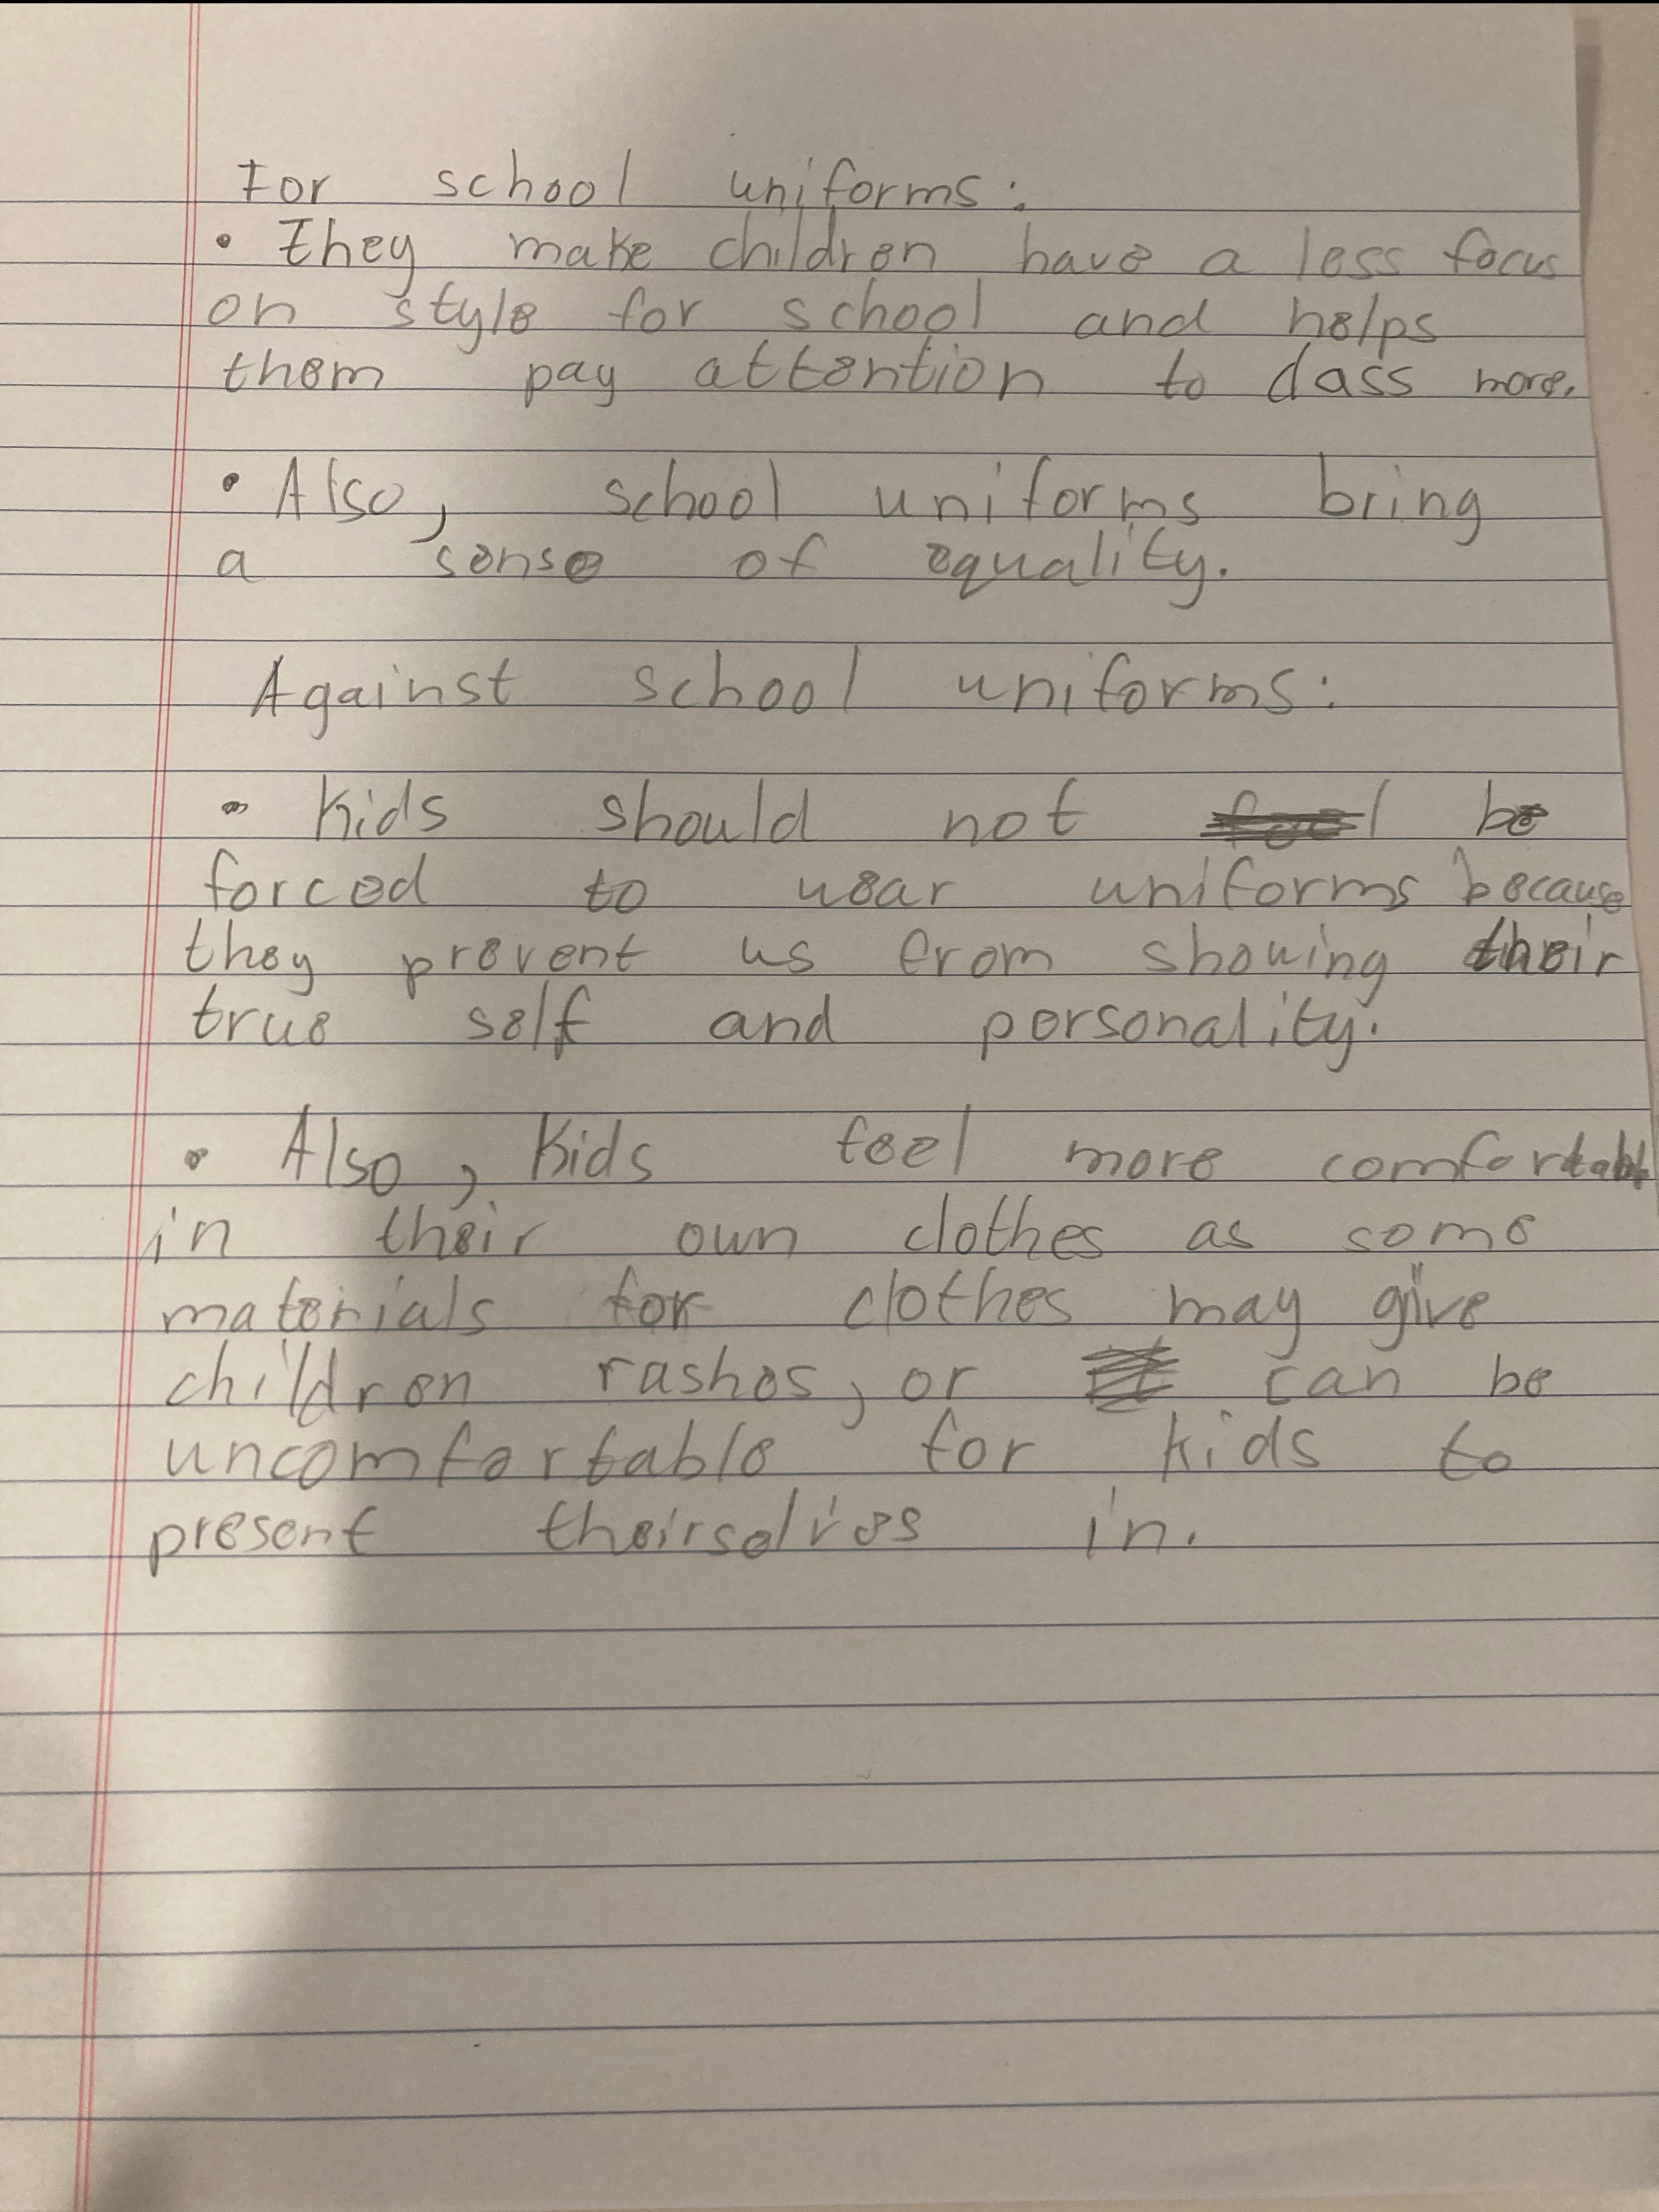 For school uniforms:
• They make children have a less focus
on style for school and helps
them pay attention to class more.
• Also, school uniforms bring
a sense of equality.
Against school uniforms:
• Kids should not be
forced to wear uniforms because
they prevent us from showing their
true self and personality.
• Also, Kids feel more comfortabl
in their own clothes as some
materials for clothes may give
children rashes, or can be
uncomfortable for kids to
present theirselves in.